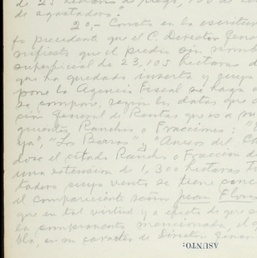 de 2a
de agostadero."
2a.- Consta en la escritura
to precedente que el C. Director General
nifiesta que el predio sin nombre
superficial de 23,105 hectaras
que ha quedado inserta y cuya
por la Agencia Fiscal se haga
se compone, según los datos que
ción General de Rentas que es a
guientes, Ranchos o Fracciones:
ya", "Los Berros", "Anexo del
dose el citado Rancho o Fracción de
una extensión de 1,300 hectaras
tadas cuya venta se tiene
el compareciente señor Juan Flores
que en tal virtud y a efecto de que
su componente mencionada, el
llo, en su carácter de Director General
ASUNTO: